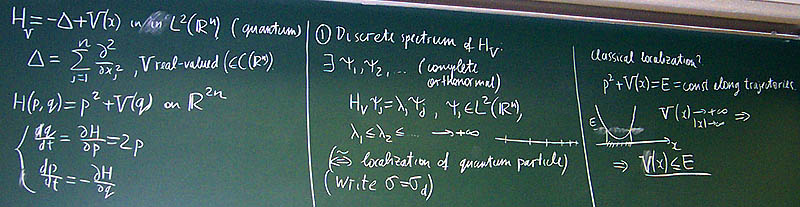 H_V = -Δ + V(x) in L²(ℝⁿ) (quantum)
Δ = Σ_{j=1}^{n} ∂²/∂x_j², V real-valued (∈ C(ℝⁿ))
H(p,q) = p² + V(q) on ℝ²ⁿ
dq/dt = ∂H/∂p = 2p
dp/dt = -∂H/∂q
① Discrete spectrum of H_V.
∃ ψ₁, ψ₂, ... (complete
orthonormal)
H_V ψ_j = λ_j ψ_j, ψ_j ∈ L²(ℝⁿ),
λ₁ ≤ λ₂ ≤ ... → +∞
(≈ localization of quantum particle)
(Write σ = σ_d)
Classical localization?
p² + V(x) = E = const along trajectories.
V(x) → +∞ ⇒
|x|→∞
E
x
⇒ V(x) ≤ E